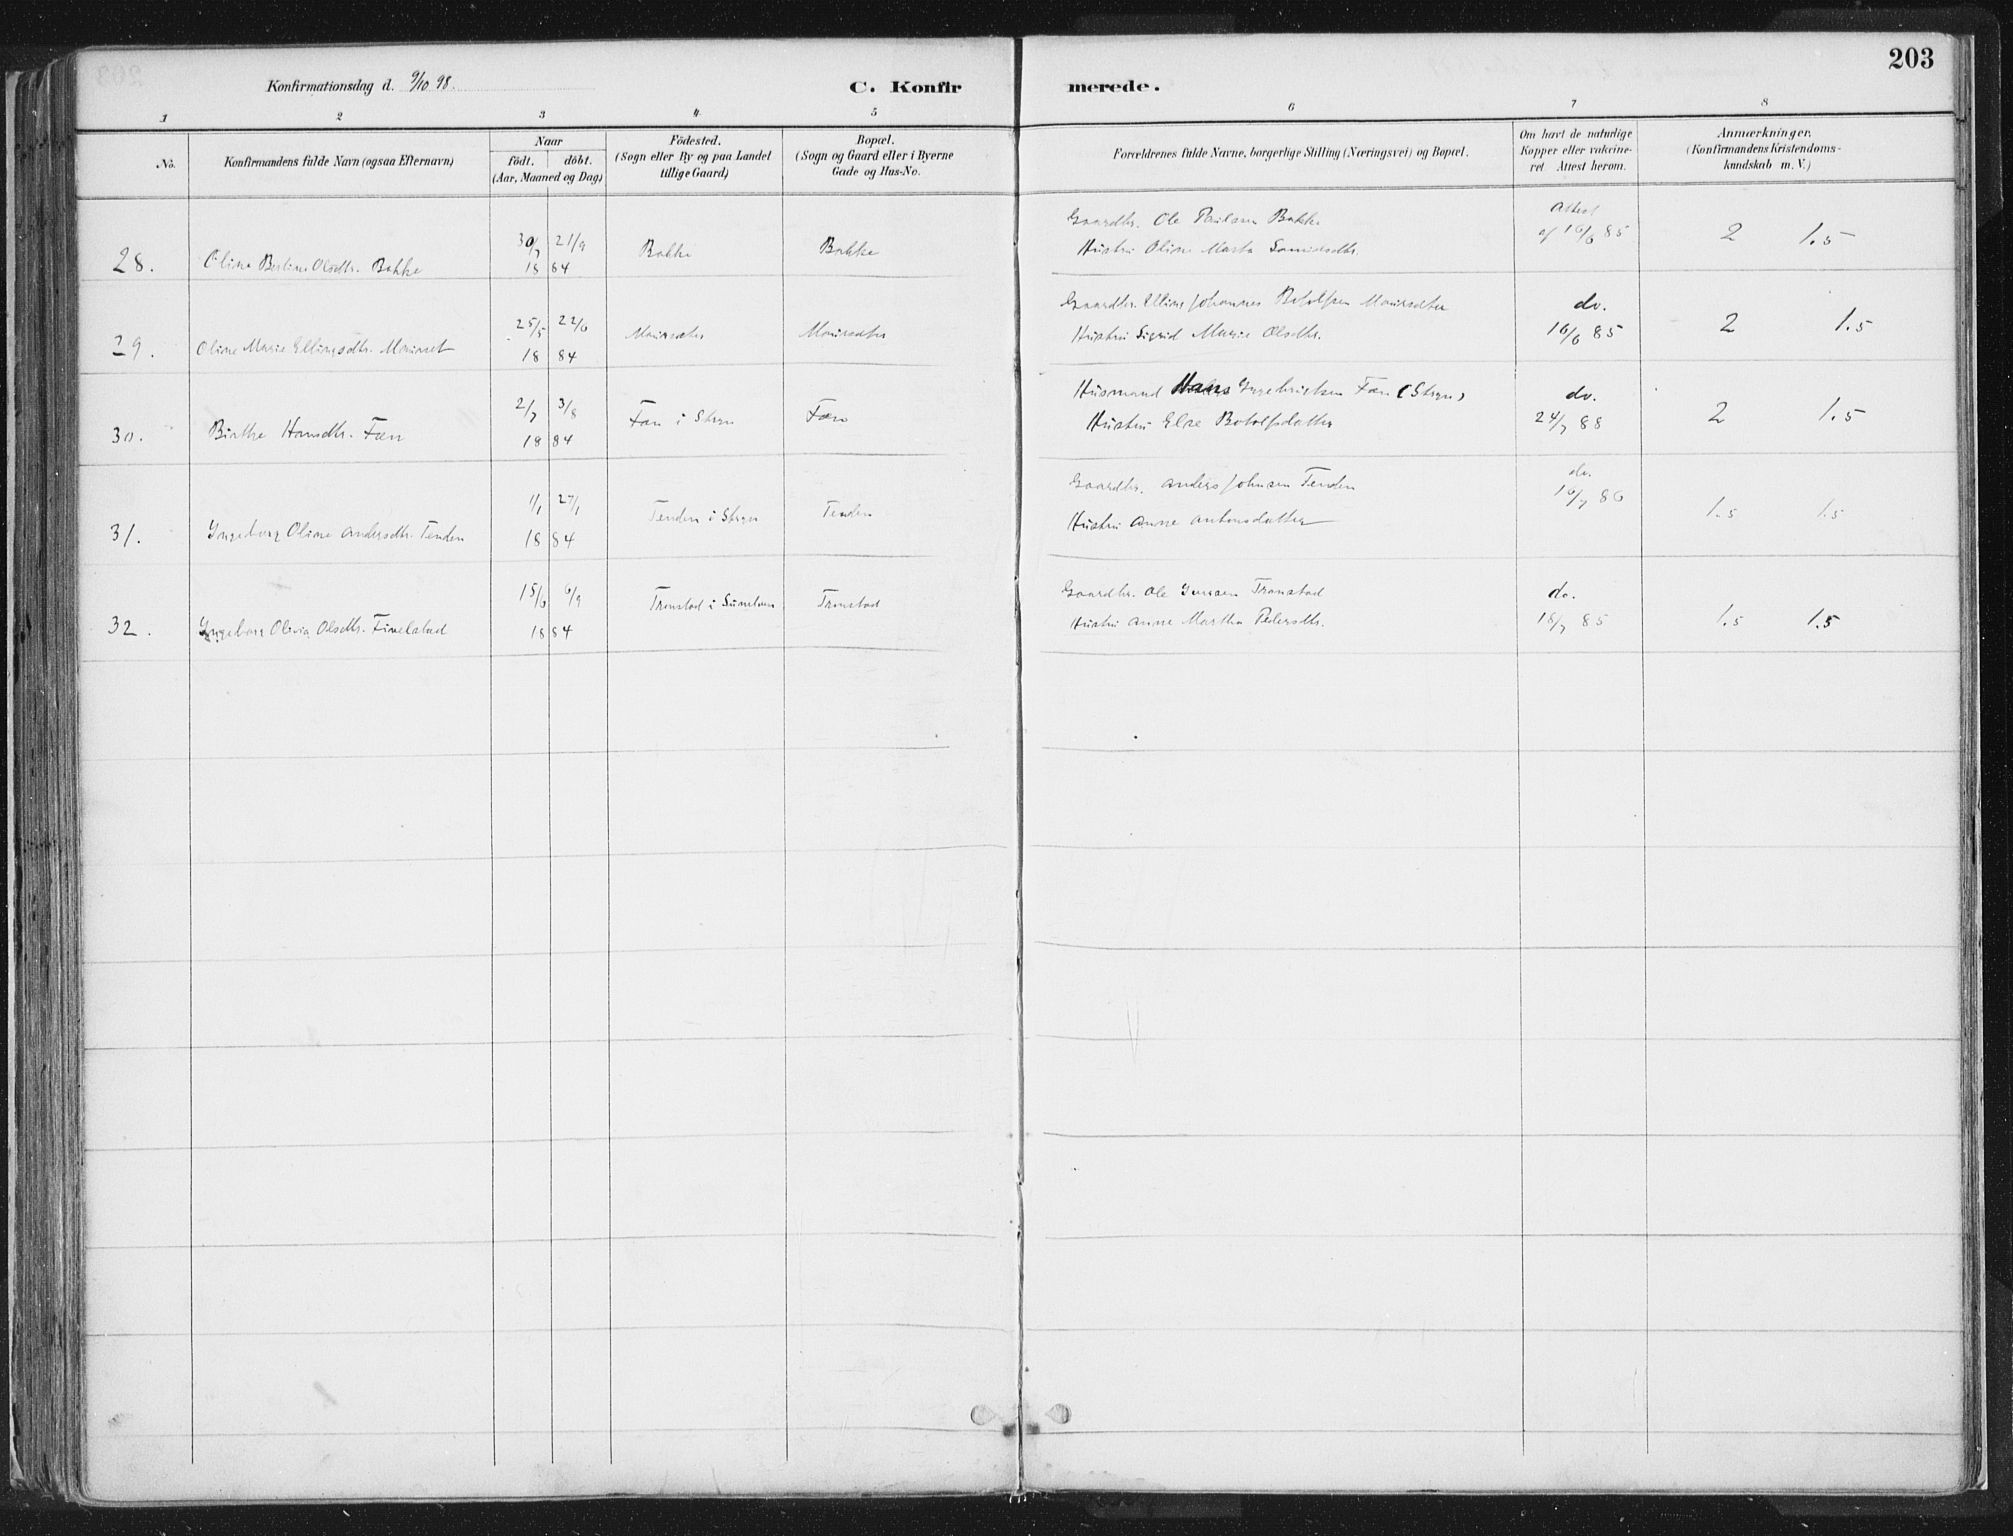 203
Konfirmationsdag d. 9/10 98.
C. Konfirmerede.
1 2 3 4 5 6 7 8
No.
Konfirmandens fulde Navn (ogsaa Efternavn)
Naar
födt. döbt.
(Aar, Maaned og Dag)
Födested.
(Sogn eller By og paa Landet
tillige Gaard)
Bopæl.
(Sogn og Gaard eller i Byerne
Gade og Hus-No.
Forældrenes fulde Navne, borgerlige Stilling (Næringsvei) og Bopæl.
Om havt de naturlige
Kopper eller vakcine-
ret. Attest herom.
Anmærkninger.
(Konfirmandens Kristendoms-
kundskab m. V.)
28. Oline Berline Olsdtr. Bakke 30/7 21/9 1884 Bakke Bakke
Gaardbr. Ole Paulsen Bakke
Hustru Oline Marta
Attest
af 16/6 85 2 1.5
29. Oline Marie Ellingsdtr. 25/5 22/6 1884
Gaardbr. Elling Johannes Botolfsen
Hustru Sigrid Marie Olsdtr.
do.
16/6 85 2 1.5
30. Birthe Hansdtr. Fæn 2/7 3/8 1884 Fæn i Stryn Fæn
Husmand Hans Ingebrigtsen Fæn (Stryn)
Hustru Else Botolfsdatter
do.
24/7 88 2 1.5
31. Ingeborg Oline Andersdtr. Tenden 1/1 27/1 1884 Tenden i Stryn Tenden
Gaardbr. Anders Johnsen Tenden
Hustru Anne Antonsdatter
do.
16/7 86 1.5 1.5
32. Ingeborg Olivia Olsdtr. Fivelstad 15/6 6/9 1884 Tronstad i Sunelven Tronstad
Gaardbr. Ole Jensen Tronstad
Hustru Anne Martha Pedersdtr.
do.
18/7 85 1.5 1.5